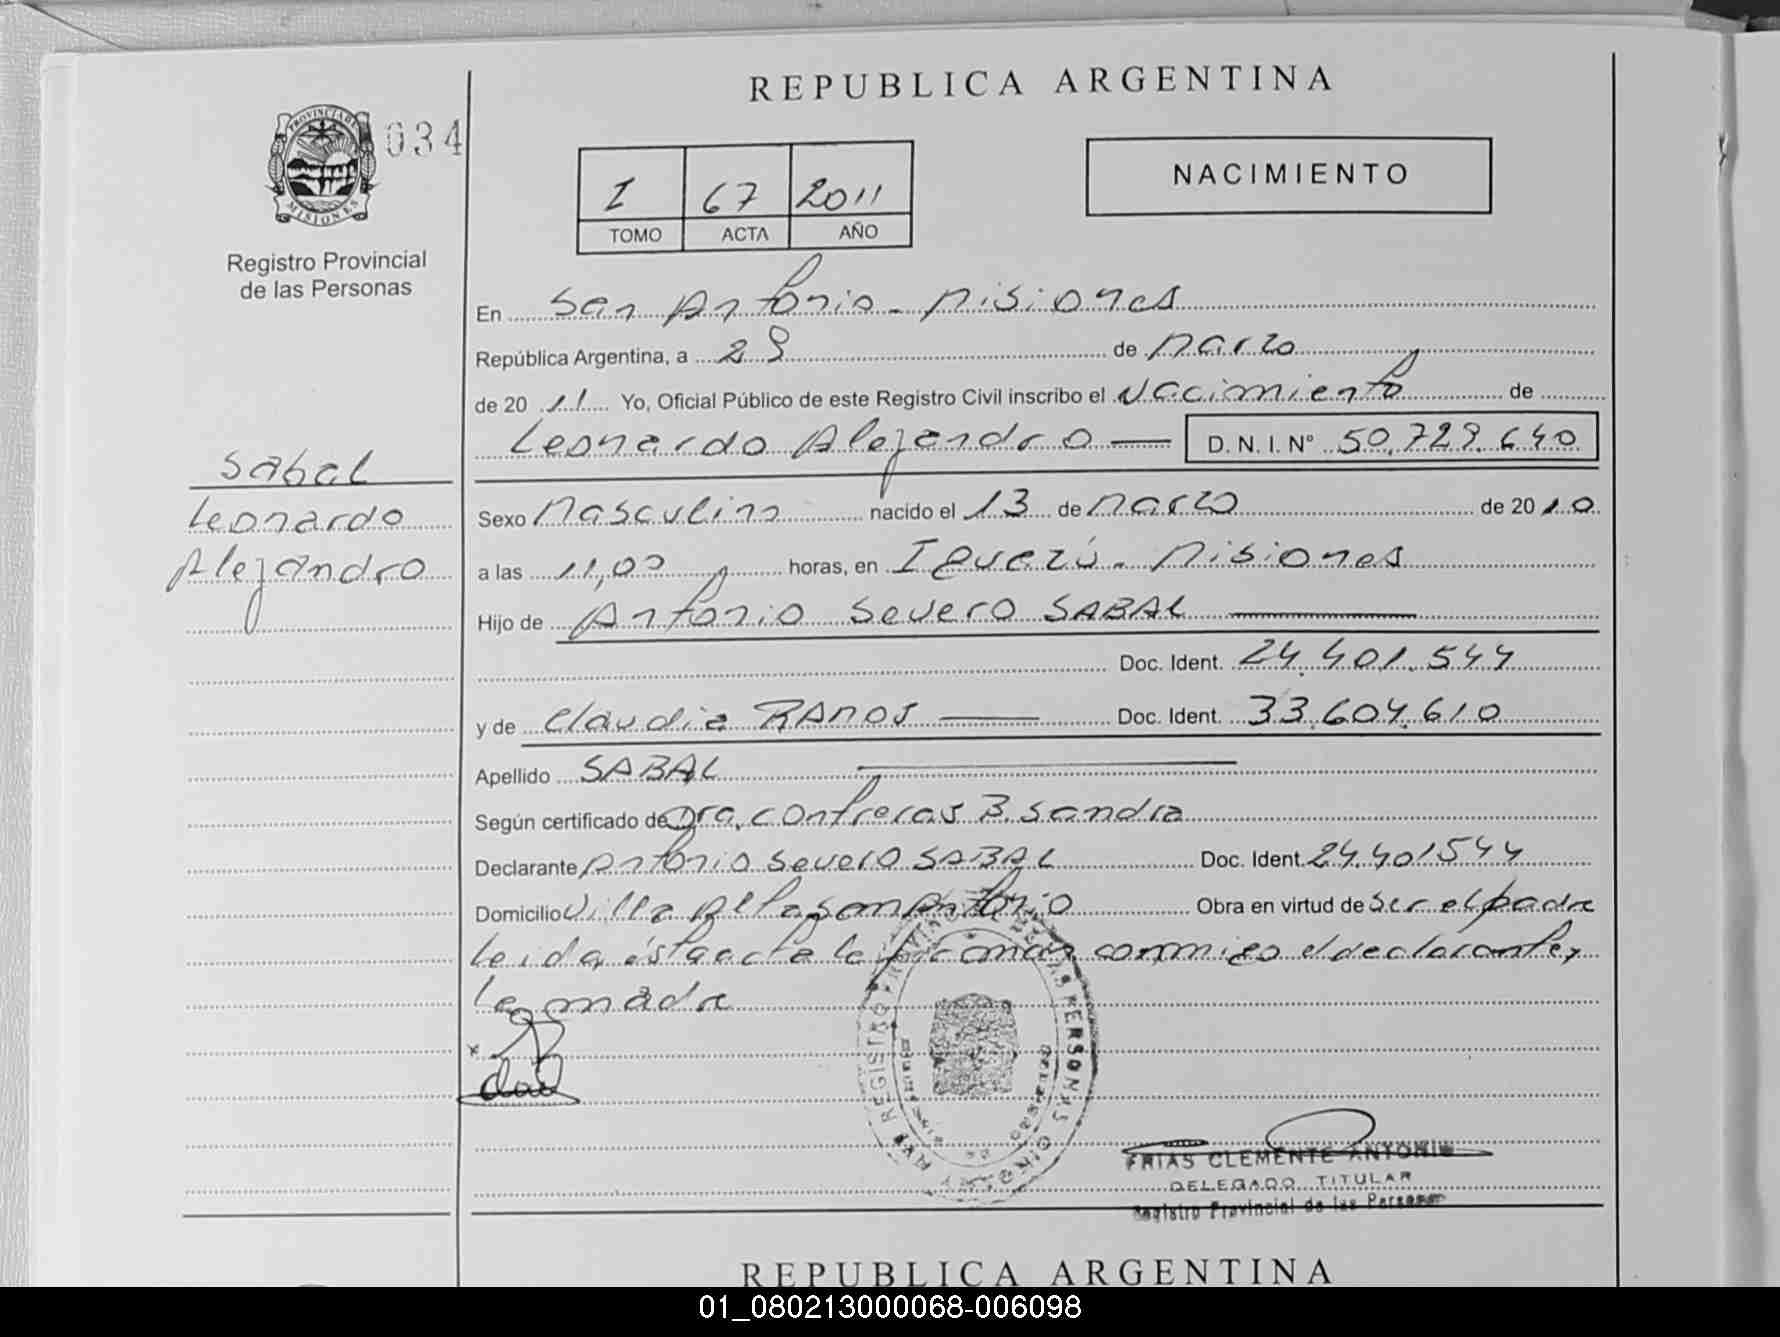 REPUBLICA ARGENTINA
PROVINCIA DE
MISIONES
034
Registro Provincial
de las Personas
I 67 2011
TOMO ACTA AÑO
NACIMIENTO
En San Antonio - Misiones
República Argentina, a 29 de Marzo
de 2011 Yo, Oficial Público de este Registro Civil inscribo el Nacimiento de
Leonardo Alejandro D. N. I. Nº 50.729.640
Sabal
Leonardo
Alejandro
Sexo Masculino nacido el 13 de Marzo de 2010
a las 11,00 horas, en Iguazú - Misiones
Hijo de Antonio Severo SABAL
Doc. Ident. 24.401.544
y de Claudia RAMOS Doc. Ident. 33.604.610
Apellido SABAL
Según certificado de Dra. Contreras B. Sandra
Declarante Antonio Severo SABAL Doc. Ident. 24.401544
Domicilio Villa Alta San Antonio Obra en virtud de ser el padre
Leida ésta acta la firman conmigo el declarante y
la madre
REGISTRO PERSONAS
FRIAS CLEMENTE ANTONIO
DELEGADO TITULAR
Registro Provincial de las Personas
REPUBLICA ARGENTINA
01_080213000068-006098